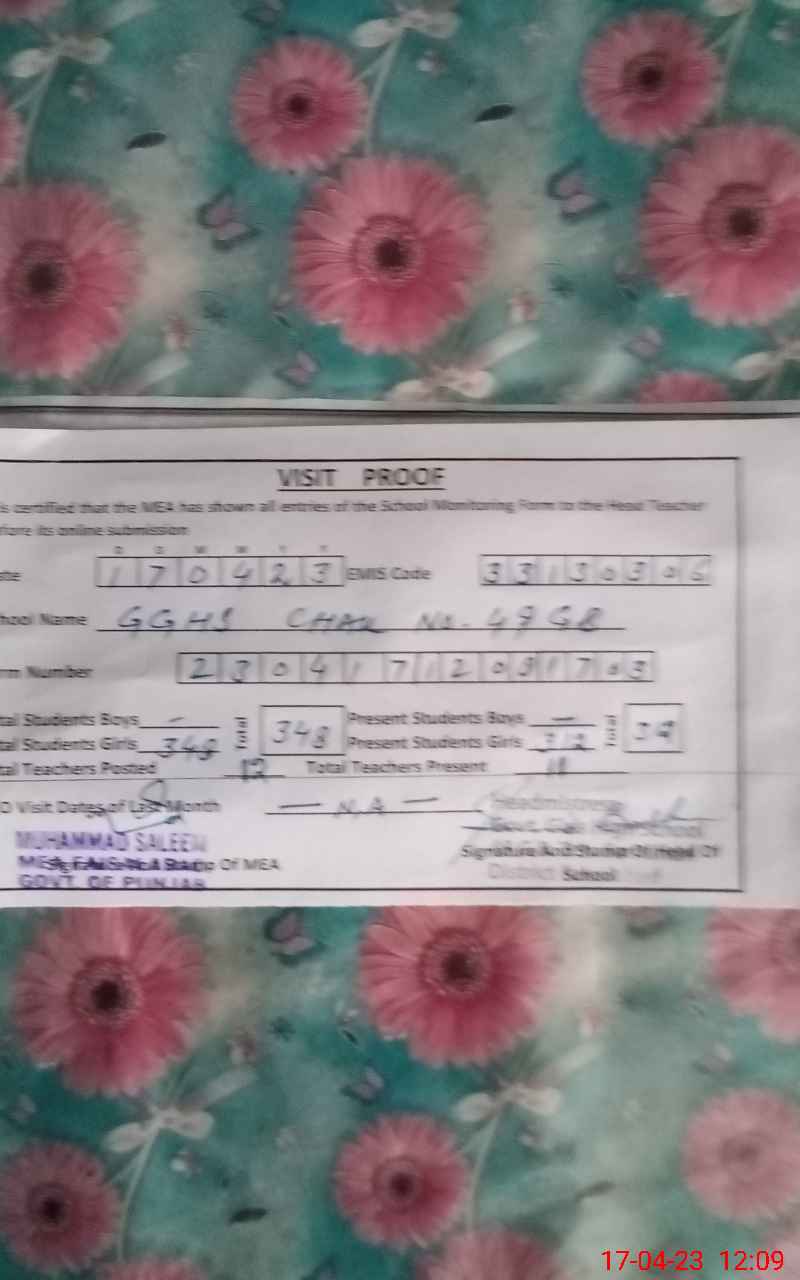 VISIT PROOF
is certified that the MEA has shown all entries of the School Monitoring Form to the Head Teacher
fore its online submission
D D M M Y Y
ate 170423 EMIS Code 33130306
hool Name GGHS CHAK No. 49 GB
rm Number 23041712091703
tal Students Boys - Total 348 Present Students Boys - Total 312
tal Students Girls 348 Present Students Girls 312
tal Teachers Posted 12 Total Teachers Present 11
O Visit Dates of Last Month — N.A — Headmistress
MUHAMMAD SALEEM School
MEA FAISALABAD Of MEA Signature And Stamp Of Head Of
GOVT. OF PUNJAB District School
17-04-23 12:09